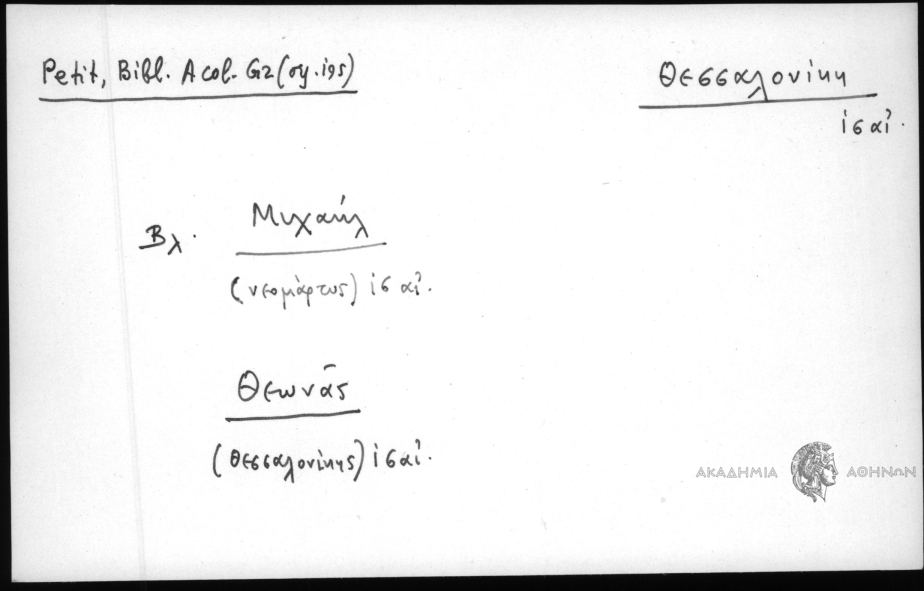 Petit, Bibl. Acol. G2 (σy. 195)
Θεσσαλονίκη
ις αἰ.
Βλ. Μιχαήλ
(νεομάρτυς) ις αἰ.
Θεωνᾶς
(Θεσσαλονίκης) ις αἰ.
ΑΚΑΔΗΜΙΑ ΑΘΗΝΩΝ